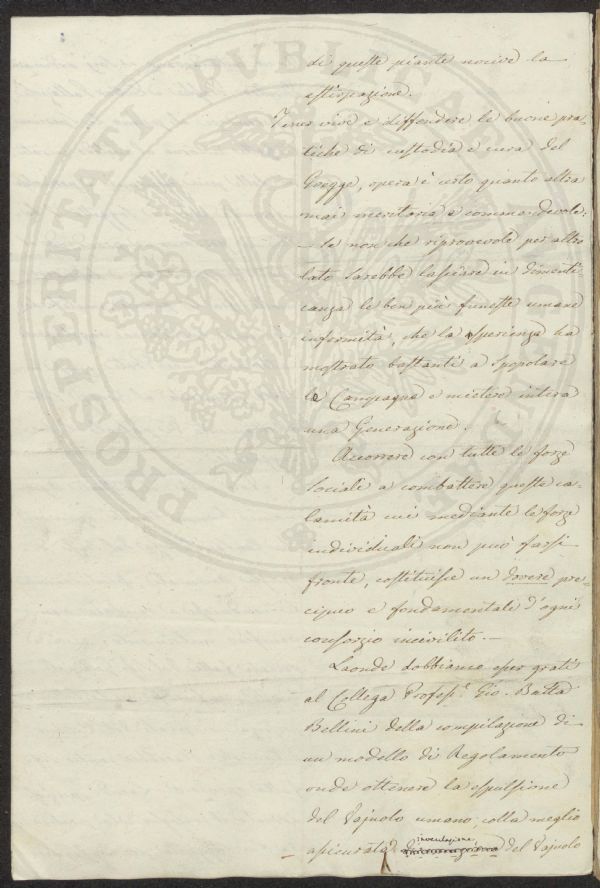 di queste piante nocive la
estirpazione.
Tener vive e diffondere le buone pra-
tiche di custodia e cura del
Gregge, opera è certo quanto altra
mai meritoria e commendevole:
— se non che riprovevole per altro
lato sarebbe lasciare in dimenti
canza le ben più funeste umane
infermità, che la sperienza ha
mostrato bastanti a spopolare
le Campagne e mietere intera
una Generazione.
Accorrere con tutte le forze
sociali a combattere queste ca-
lamità cui mediante le forze
individuali non può farsi
fronte, costituisce un dovere pre-
cipuo e fondamentale d'ogni
consorzio incivilito. —
Laonde dobbiamo esser grati
al Collega Profess.r Gio. Batta
Bellini della compilazione di
un modello di Regolamento
onde ottenere la espulsione
del Vajuolo umano colla meglio
inoculazione
assicurata del Vajuolo
PROSPERITATI PVBLICAE